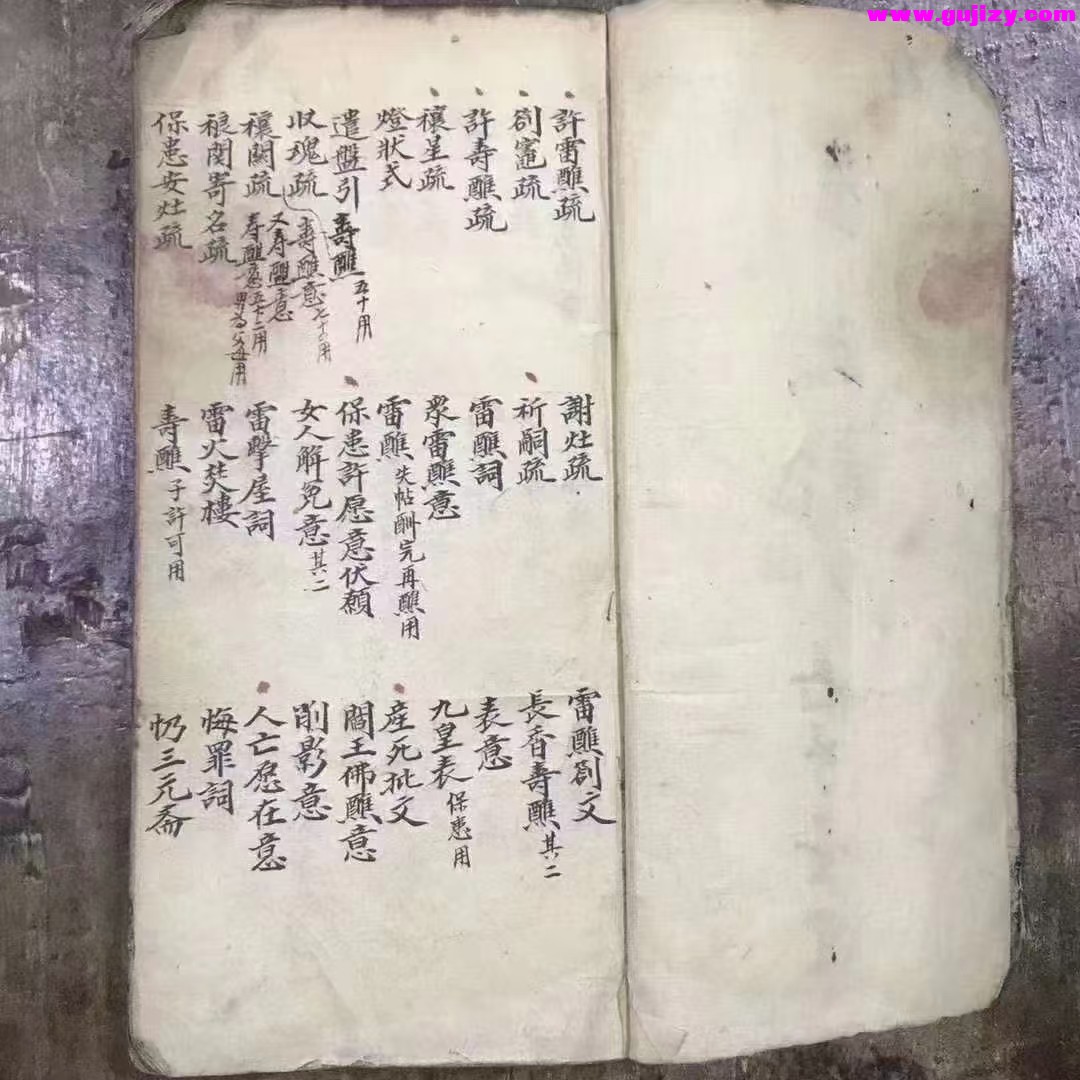 www.gujizy.com
許雷醮疏
劄竈疏
許壽醮疏
禳星疏
燈狀式
遣盤引 壽醮 五十用
收魂疏 壽醮意 七十用
禳關疏 又壽醮意
禳関寄名疏 壽醮意五十二用 男為父母用
保患安灶疏
謝灶疏
祈嗣疏
雷醮詞
眾雷醮意
雷醮 失帖酬完再醮用
保患許愿意伏願
女人解免意 其二
雷擊屋詞
雷火焚樓
壽醮 子許可用
雷醮劄文
長香壽醮 其二
表意
九皇表 保患用
産死批文
閻王佛醮意
削影意
人亡愿在意
悔罪詞
三元齋